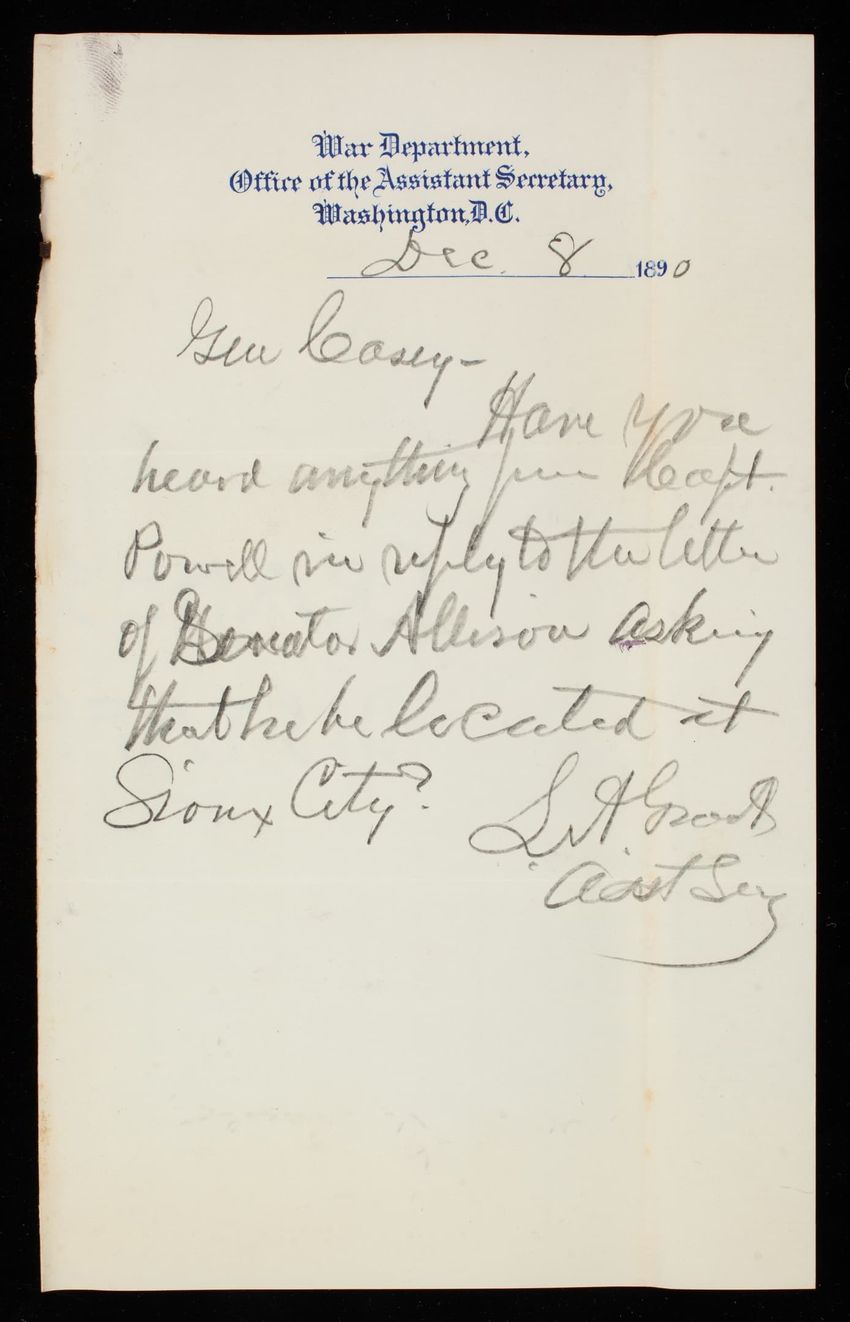 War Department,
Office of the Assistant Secretary,
Washington, D.C.
Dec. 8 1890
Gen Casey -
Have you
heard anything from Capt.
Powell in reply to the letter
of Senator Allison asking
that he be located at
Sioux City?
L. A. Grant
Asst Secy